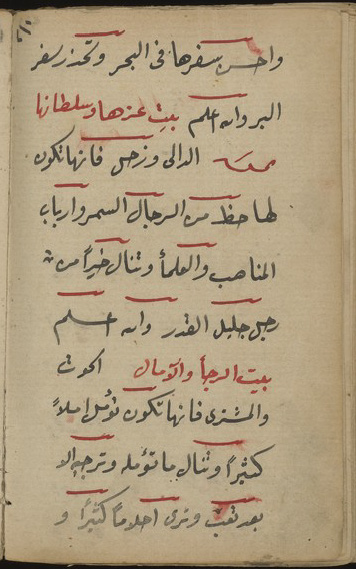 واحسن سفرها في البحر وتحذر سفر
البر والله اعلم بيت عزها وسلطانها
الدالى وزحل فانها تكون
لها حظ من الرجال السمر وارباب
المناصب والعلمأ وتنال خيراً من
رجل جليل القدر والله اعلم
بيت الرجأ والآمال الحوت
والمشترى فانها تكون تؤمل املاً
كثيراً وتنال ما تؤمله وترجوا
بعد تعب وترى احلاماً كثيراً و